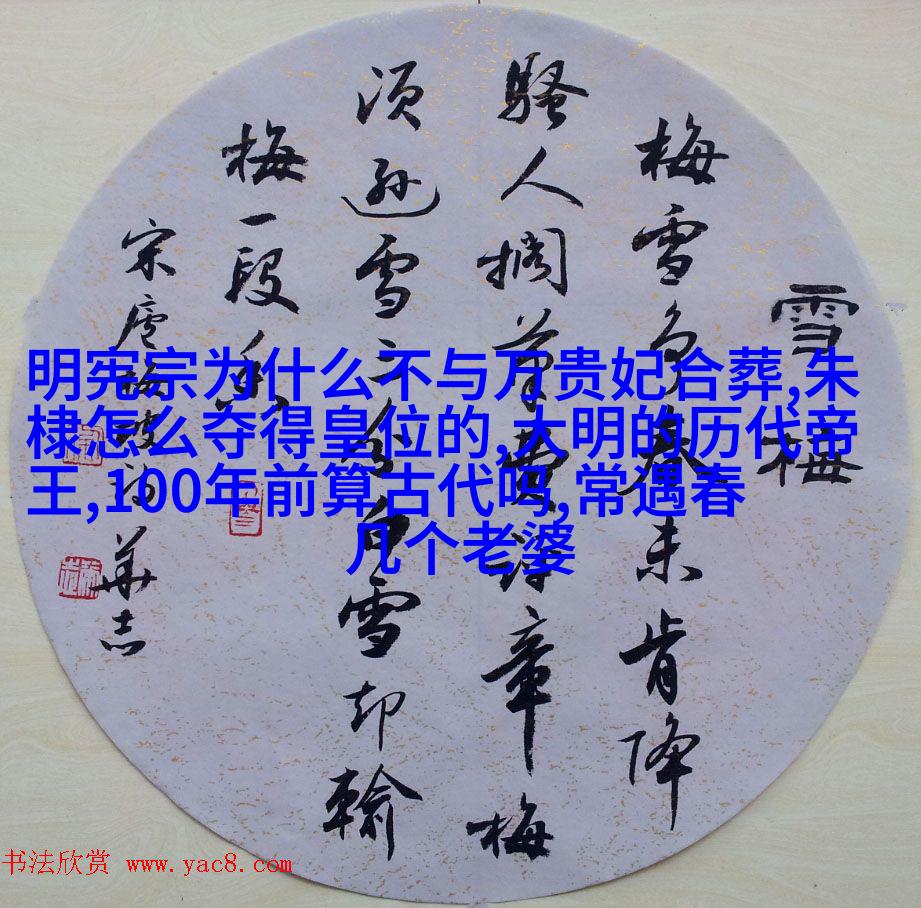 雪梅
梅雪争春未肯降
骚人搁笔费评章梅
须逊雪三分白雪却输
梅一段香
宋卢梅坡诗 华志
明宪宗为什么不与万贵妃合葬,朱
棣怎么夺得皇位的,大明的历代帝
王,100年前算古代吗,常遇春
几个老婆
书法欣赏 www.yac8.com